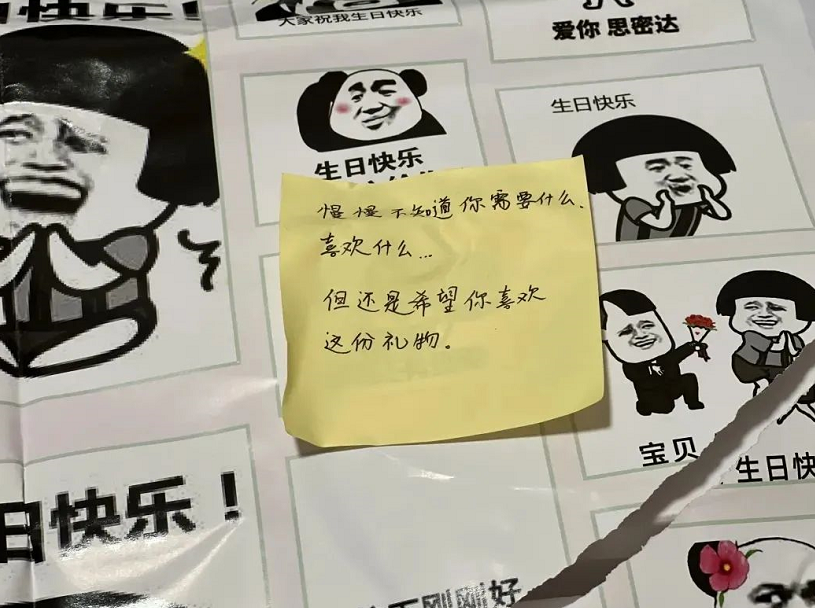 快乐！
大家祝我生日快乐
爱你 思密达
生日快乐
生日快乐
慢慢不知道你需要什么.
喜欢什么...
但还是希望你喜欢
这份礼物。
宝贝
生日快
日快乐！
刚刚好